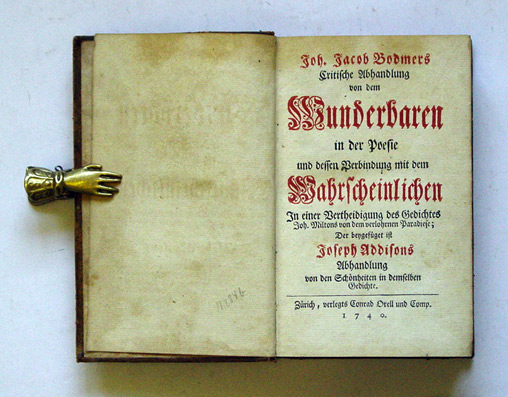 Joh. Jacob Bodmers
Critische Abhandlung
von dem
Wunderbaren
in der Poesie
und dessen Verbindung mit dem
Wahrscheinlichen
In einer Vertheidigung des Gedichtes
Joh. Miltons von dem verlohrnen Paradiese;
Der beygefüget ist
Joseph Addisons
Abhandlung
von den Schönheiten in demselben
Gedichte.
Zürich, verlegts Conrad Orell und Comp.
1740.